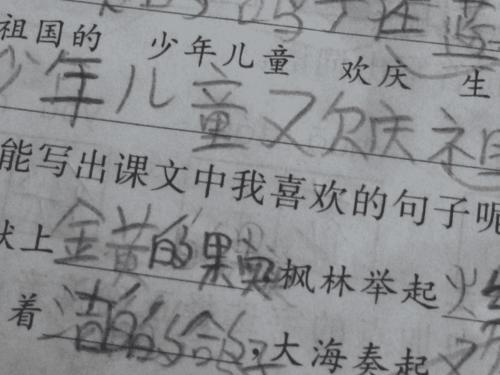 祖国的 少年儿童 欢庆 生
少年儿童又欢庆祖
能写出课文中我喜欢的句子呢
上金黄的果实枫林举起火
着 大海奏起